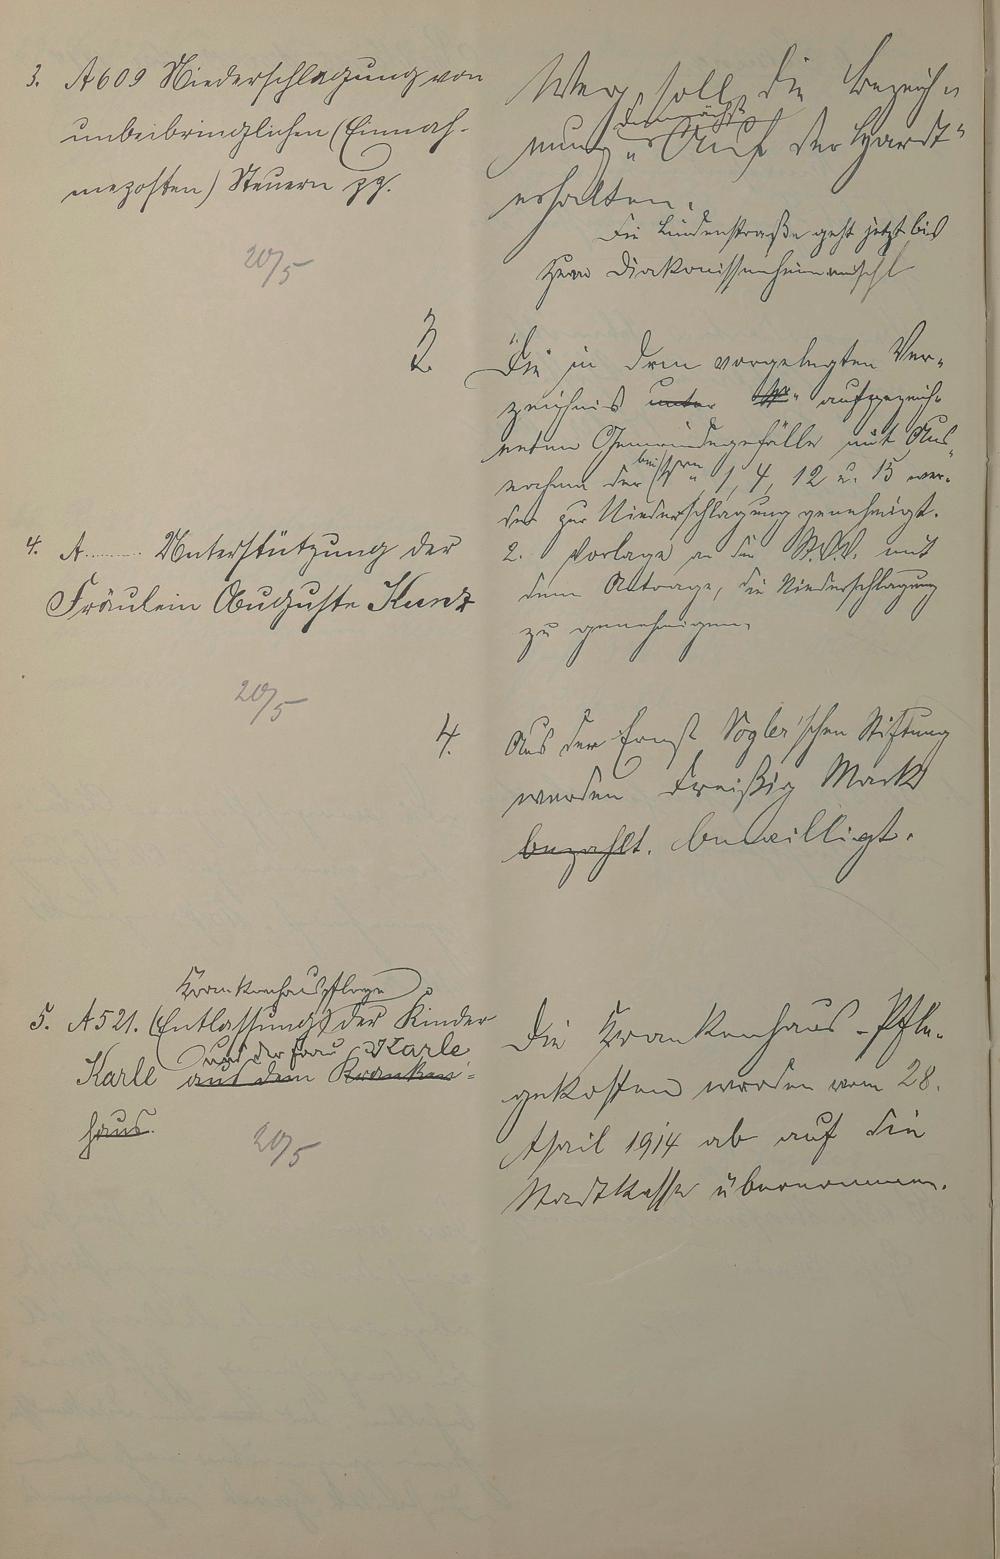 3. A 609 Niederschlagung von
unbeibringlichen (Einnah-
meposten) Steuern pp.
20/5
Weg soll die Bezeich-
demnächst
nung "Auf der Hardt"
erhalten.
Die Lindenstraße geht jetzt bis
Diakonissenheim einschl
3. Die in dem vorgelegten Ver-
zeichnis unter aufgezeich-
neten Gemeindegefälle mit Aus-
nahme der bei 1, 4, 12 u. 15 wer-
den zur Niederschlagung genehmigt.
2. Vorlage an die mit
dem Antrage, die Niederschlagung
zu genehmigen.
4. A......... Unterstützung der
Fräulein Auguste Kunz
20/5
4. Aus der Ernst Vogler'schen Stiftung
werden Dreißig Mark
bezahlt. bewilligt.
Krankenhauspflege
5. A 521. (Entlassung) der Kinder
und der Frau Karle
Karle aus dem Kranken-
haus.
20/5
Die Krankenhaus-Pfle-
gekosten werden vom 28.
April 1914 ab auf die
Stadtkasse übernommen.